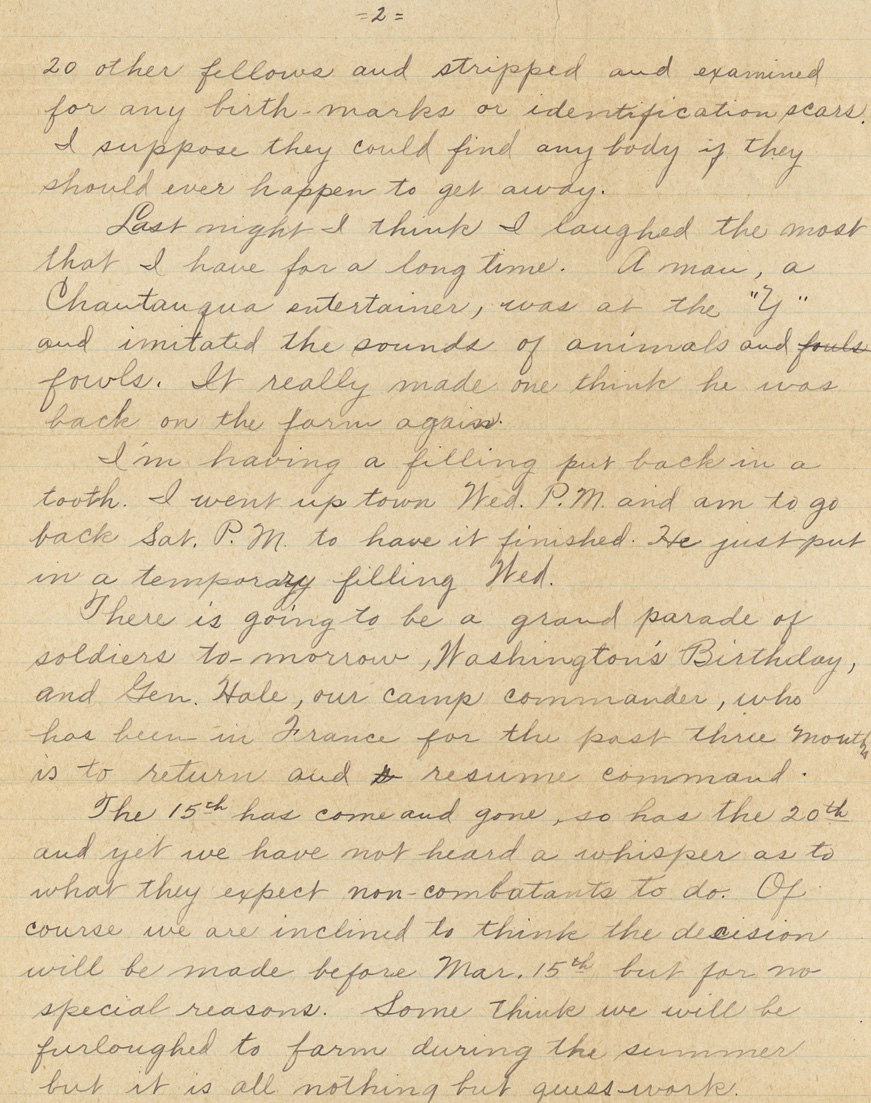 =2=
20 other fellows and stripped and examined
for any birth-marks or identification scars.
I suppose they could find any body if they
should ever happen to get away.
Last night I think I laughed the most
that I have for a long time. A man, a
Chautauqua entertainer, was at the "Y"
and imitated the sounds of animals and fouls
fowls. It really made one think he was
back on the farm again.
I'm having a filling put back in a
tooth. I went up town Wed. P.M. and am to go
back Sat. P.M. to have it finished. He just put
in a temporary filling Wed.
There is going to be a grand parade of
soldiers to-morrow, Washington's Birthday,
and Gen. Hale, our camp commander, who
has been in France for the past three months
is to return and to resume command.
The 15th has come and gone, so has the 20th
and yet we have not heard a whisper as to
what they expect non-combatants to do. Of
course we are inclined to think the decision
will be made before Mar. 15th but for no
special reasons. Some think we will be
furloughed to farm during the summer
but it is all nothing but guess-work.